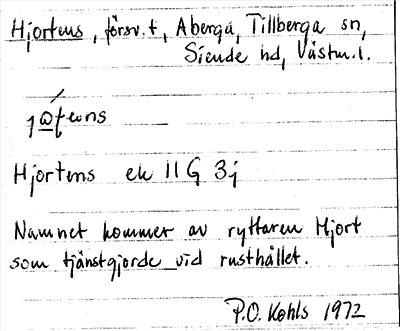 Hjortens, försv.t, Åberga, Tillberga sn,
Siende hd, Västm.l.
Hjortens ek 11G 3j
Namnet kommer av ryttaren Hjort
som tjänstgjorde vid rusthållet.
P.O. Kohls 1972